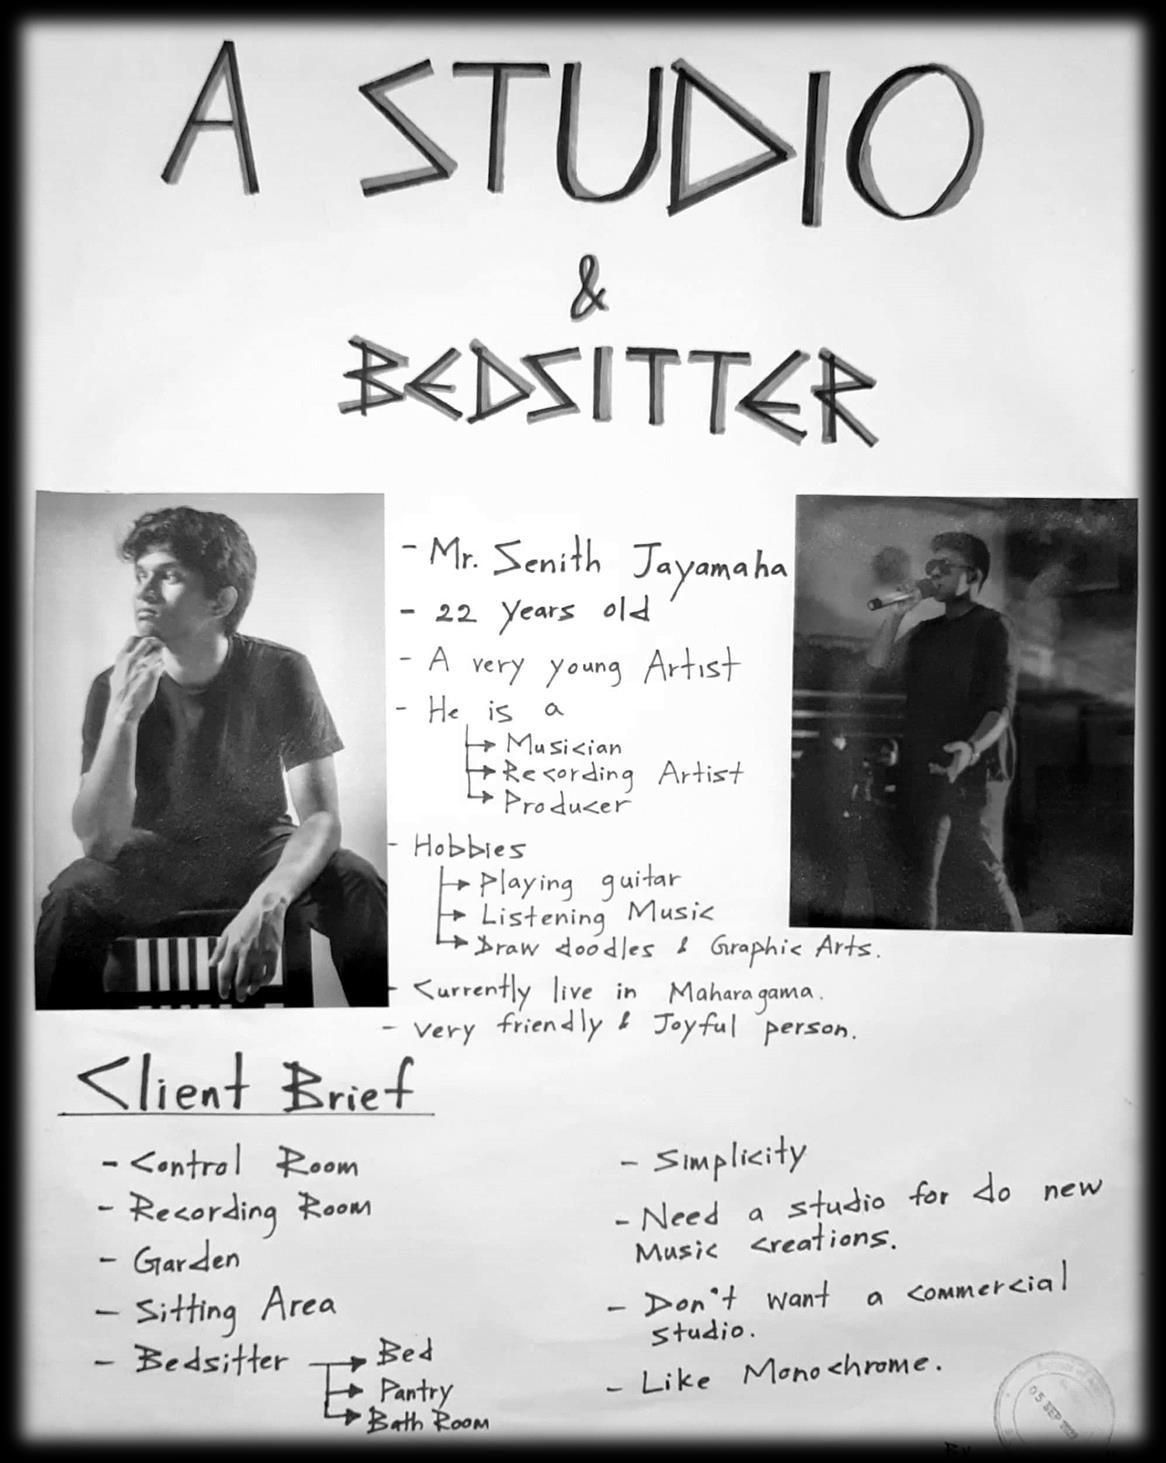 A STUDIO
&
BEDSITTER
- Mr. Senith Jayamaha
- 22 years old
- A very young Artist
- He is a
Musician
Recording Artist
Producer
- Hobbies
Playing guitar
Listening Music
Draw doodles & Graphic Arts.
- Currently live in Maharagama.
- Very friendly & Joyful person.
Client Brief
- Control Room
- Recording Room
- Garden
- Sitting Area
- Bedsitter
Bed
Pantry
Bath Room
- Simplicity
- Need a studio for do new
Music creations.
- Don't want a commercial
studio.
- Like Monochrome.
05 SEP